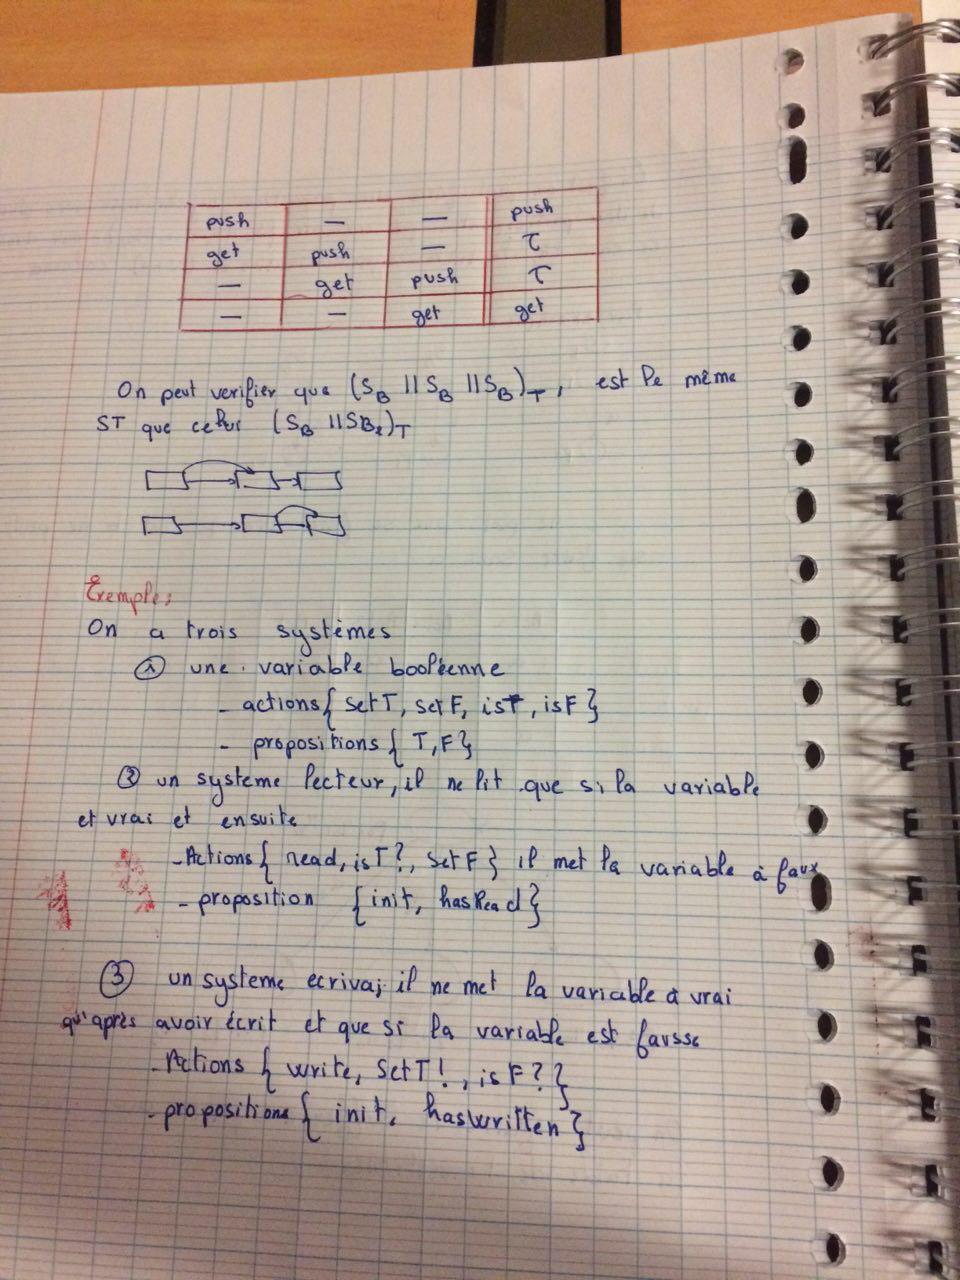 push — — push
get push — τ
— get push τ
— — get get
On peut verifier que (S_B || S_B || S_B)_T, est le même
ST que celui (S_B || SB_2)_T
Exemple:
On a trois systèmes
① une variable booléenne
- actions{ setT, setF, isT, isF }
- propositions { T, F}
② un systeme lecteur, il ne lit que si la variable
et vrai et ensuite
- Actions { read, isT?, SetF } il met la variable à faux
- proposition {init, hasRead}
③ un systeme ecrivai il ne met la variable à vrai
qu'après avoir écrit et que si la variable est fausse
- Actions { write, SetT!, isF? }
- propositions { init, haswritten }